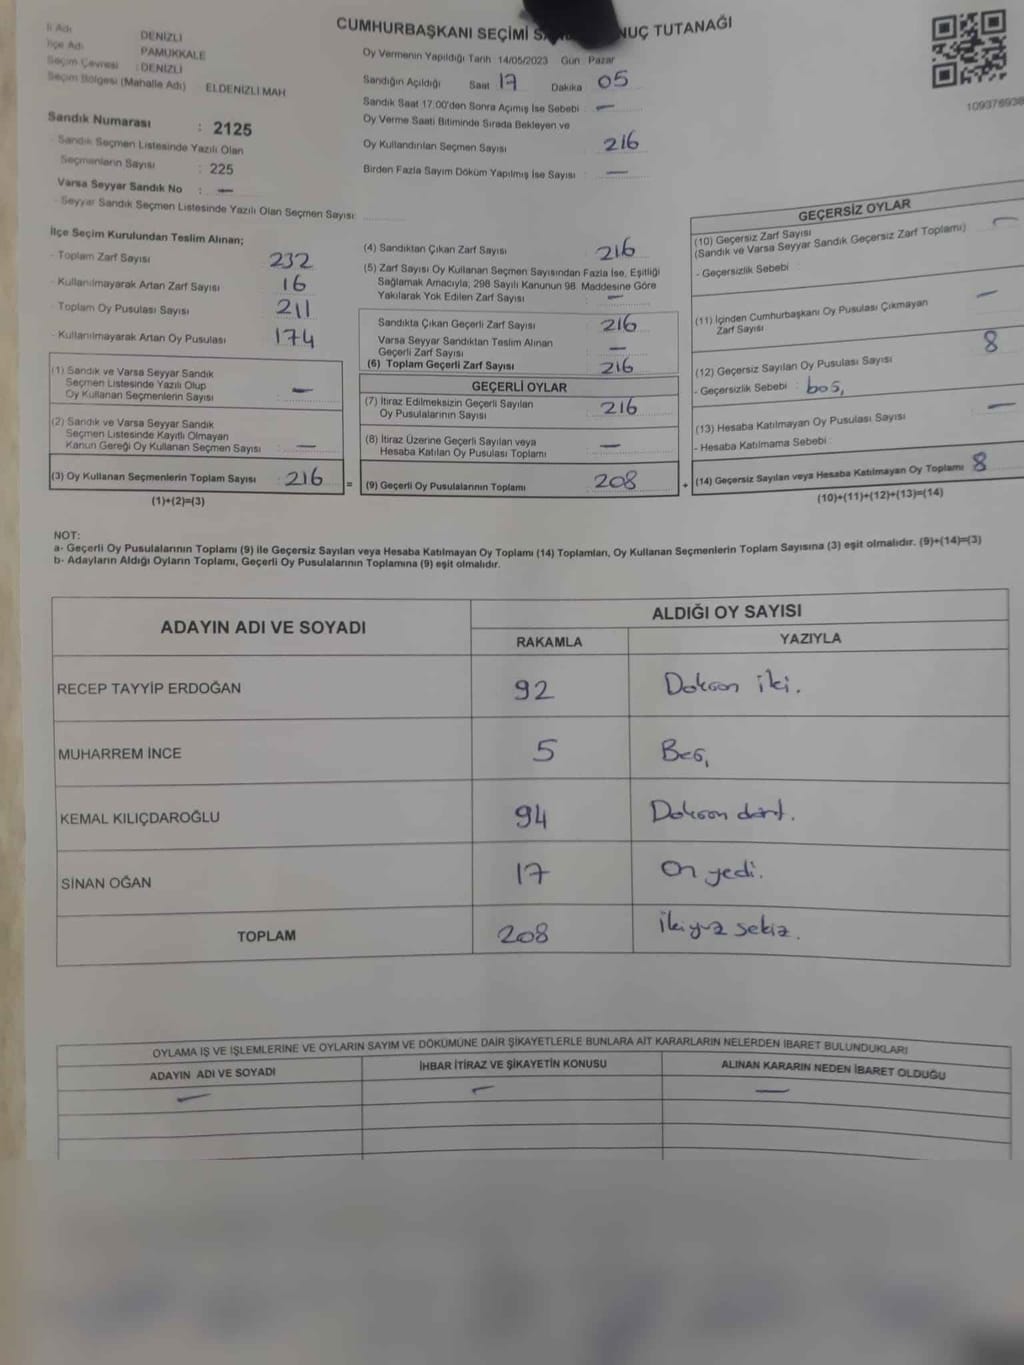 CUMHURBAŞKANI SEÇİMİ NUÇ TUTANAĞI
İl Adı DENİZLİ
İlçe Adı PAMUKKALE
Seçim Çevresi : DENİZLİ
Seçim Bölgesi (Mahalle Adı) ELDENİZLİ MAH
Sandık Numarası : 2125
- Sandık Seçmen Listesinde Yazılı Olan
Seçmenlerin Sayısı : 225
Varsa Seyyar Sandık No : —
- Seyyar Sandık Seçmen Listesinde Yazılı Olan Seçmen Sayısı:
Oy Vermenin Yapıldığı Tarih 14/05/2023 Gün : Pazar
Sandığın Açıldığı Saat 17 Dakika 05
Sandık Saat 17.00'den Sonra Açımış İse Sebebi : —
Oy Verme Saati Bitiminde Sırada Bekleyen ve
Oy Kullandırılan Seçmen Sayısı 216
Birden Fazla Sayım Döküm Yapılmış İse Sayısı : —
109376938
İlçe Seçim Kurulundan Teslim Alınan;
- Toplam Zarf Sayısı 232
- Kullanılmayarak Artan Zarf Sayısı 16
- Toplam Oy Pusulası Sayısı 211
- Kullanılmayarak Artan Oy Pusulası 174
(1) Sandık ve Varsa Seyyar Sandık
Seçmen Listesinde Yazılı Olup
Oy Kullanan Seçmenlerin Sayısı : —
(2) Sandık ve Varsa Seyyar Sandık
Seçmen Listesinde Kayıtlı Olmayan
Kanun Gereği Oy Kullanan Seçmen Sayısı : —
(3) Oy Kullanan Seçmenlerin Toplam Sayısı : 216 =
(1)+(2)=(3)
(4) Sandıktan Çıkan Zarf Sayısı 216
(5) Zarf Sayısı Oy Kullanan Seçmen Sayısından Fazla İse, Eşitliği
Sağlamak Amacıyla, 298 Sayılı Kanunun 98. Maddesine Göre
Yakılarak Yok Edilen Zarf Sayısı : —
Sandıkta Çıkan Geçerli Zarf Sayısı : 216
Varsa Seyyar Sandıktan Teslim Alınan
Geçerli Zarf Sayısı : —
(6) Toplam Geçerli Zarf Sayısı : 216
GEÇERLİ OYLAR
(7) İtiraz Edilmeksizin Geçerli Sayılan
Oy Pusulalarının Sayısı : 216
(8) İtiraz Üzerine Geçerli Sayılan veya
Hesaba Katılan Oy Pusulası Toplamı : —
(9) Geçerli Oy Pusulalarının Toplamı : 208 +
GEÇERSİZ OYLAR
(10) Geçersiz Zarf Sayısı —
(Sandık ve Varsa Seyyar Sandık Geçersiz Zarf Toplamı)
- Geçersizlik Sebebi :
(11) İçinden Cumhurbaşkanı Oy Pusulası Çıkmayan —
Zarf Sayısı
(12) Geçersiz Sayılan Oy Pusulası Sayısı 8
- Geçersizlik Sebebi : boş
(13) Hesaba Katılmayan Oy Pusulası Sayısı —
- Hesaba Katılmama Sebebi :
(14) Geçersiz Sayılan veya Hesaba Katılmayan Oy Toplamı 8
(10)+(11)+(12)+(13)=(14)
NOT:
a- Geçerli Oy Pusulalarının Toplamı (9) ile Geçersiz Sayılan veya Hesaba Katılmayan Oy Toplamı (14) Toplamları, Oy Kullanan Seçmenlerin Toplam Sayısına (3) eşit olmalıdır. (9)+(14)=(3)
b- Adayların Aldığı Oyların Toplamı, Geçerli Oy Pusulalarının Toplamına (9) eşit olmalıdır.
ADAYIN ADI VE SOYADI ALDIĞI OY SAYISI
RAKAMLA YAZIYLA
RECEP TAYYİP ERDOĞAN 92 Doksan iki.
MUHARREM İNCE 5 Beş
KEMAL KILIÇDAROĞLU 94 Doksan dört.
SİNAN OĞAN 17 On yedi.
TOPLAM 208 İkiyüz sekiz.
OYLAMA İŞ VE İŞLEMLERİNE VE OYLARIN SAYIM VE DÖKÜMÜNE DAİR ŞİKAYETLERLE BUNLARA AİT KARARLARIN NELERDEN İBARET BULUNDUKLARI
ADAYIN ADI VE SOYADI İHBAR İTİRAZ VE ŞİKAYETİN KONUSU ALINAN KARARIN NEDEN İBARET OLDUĞU
— — —